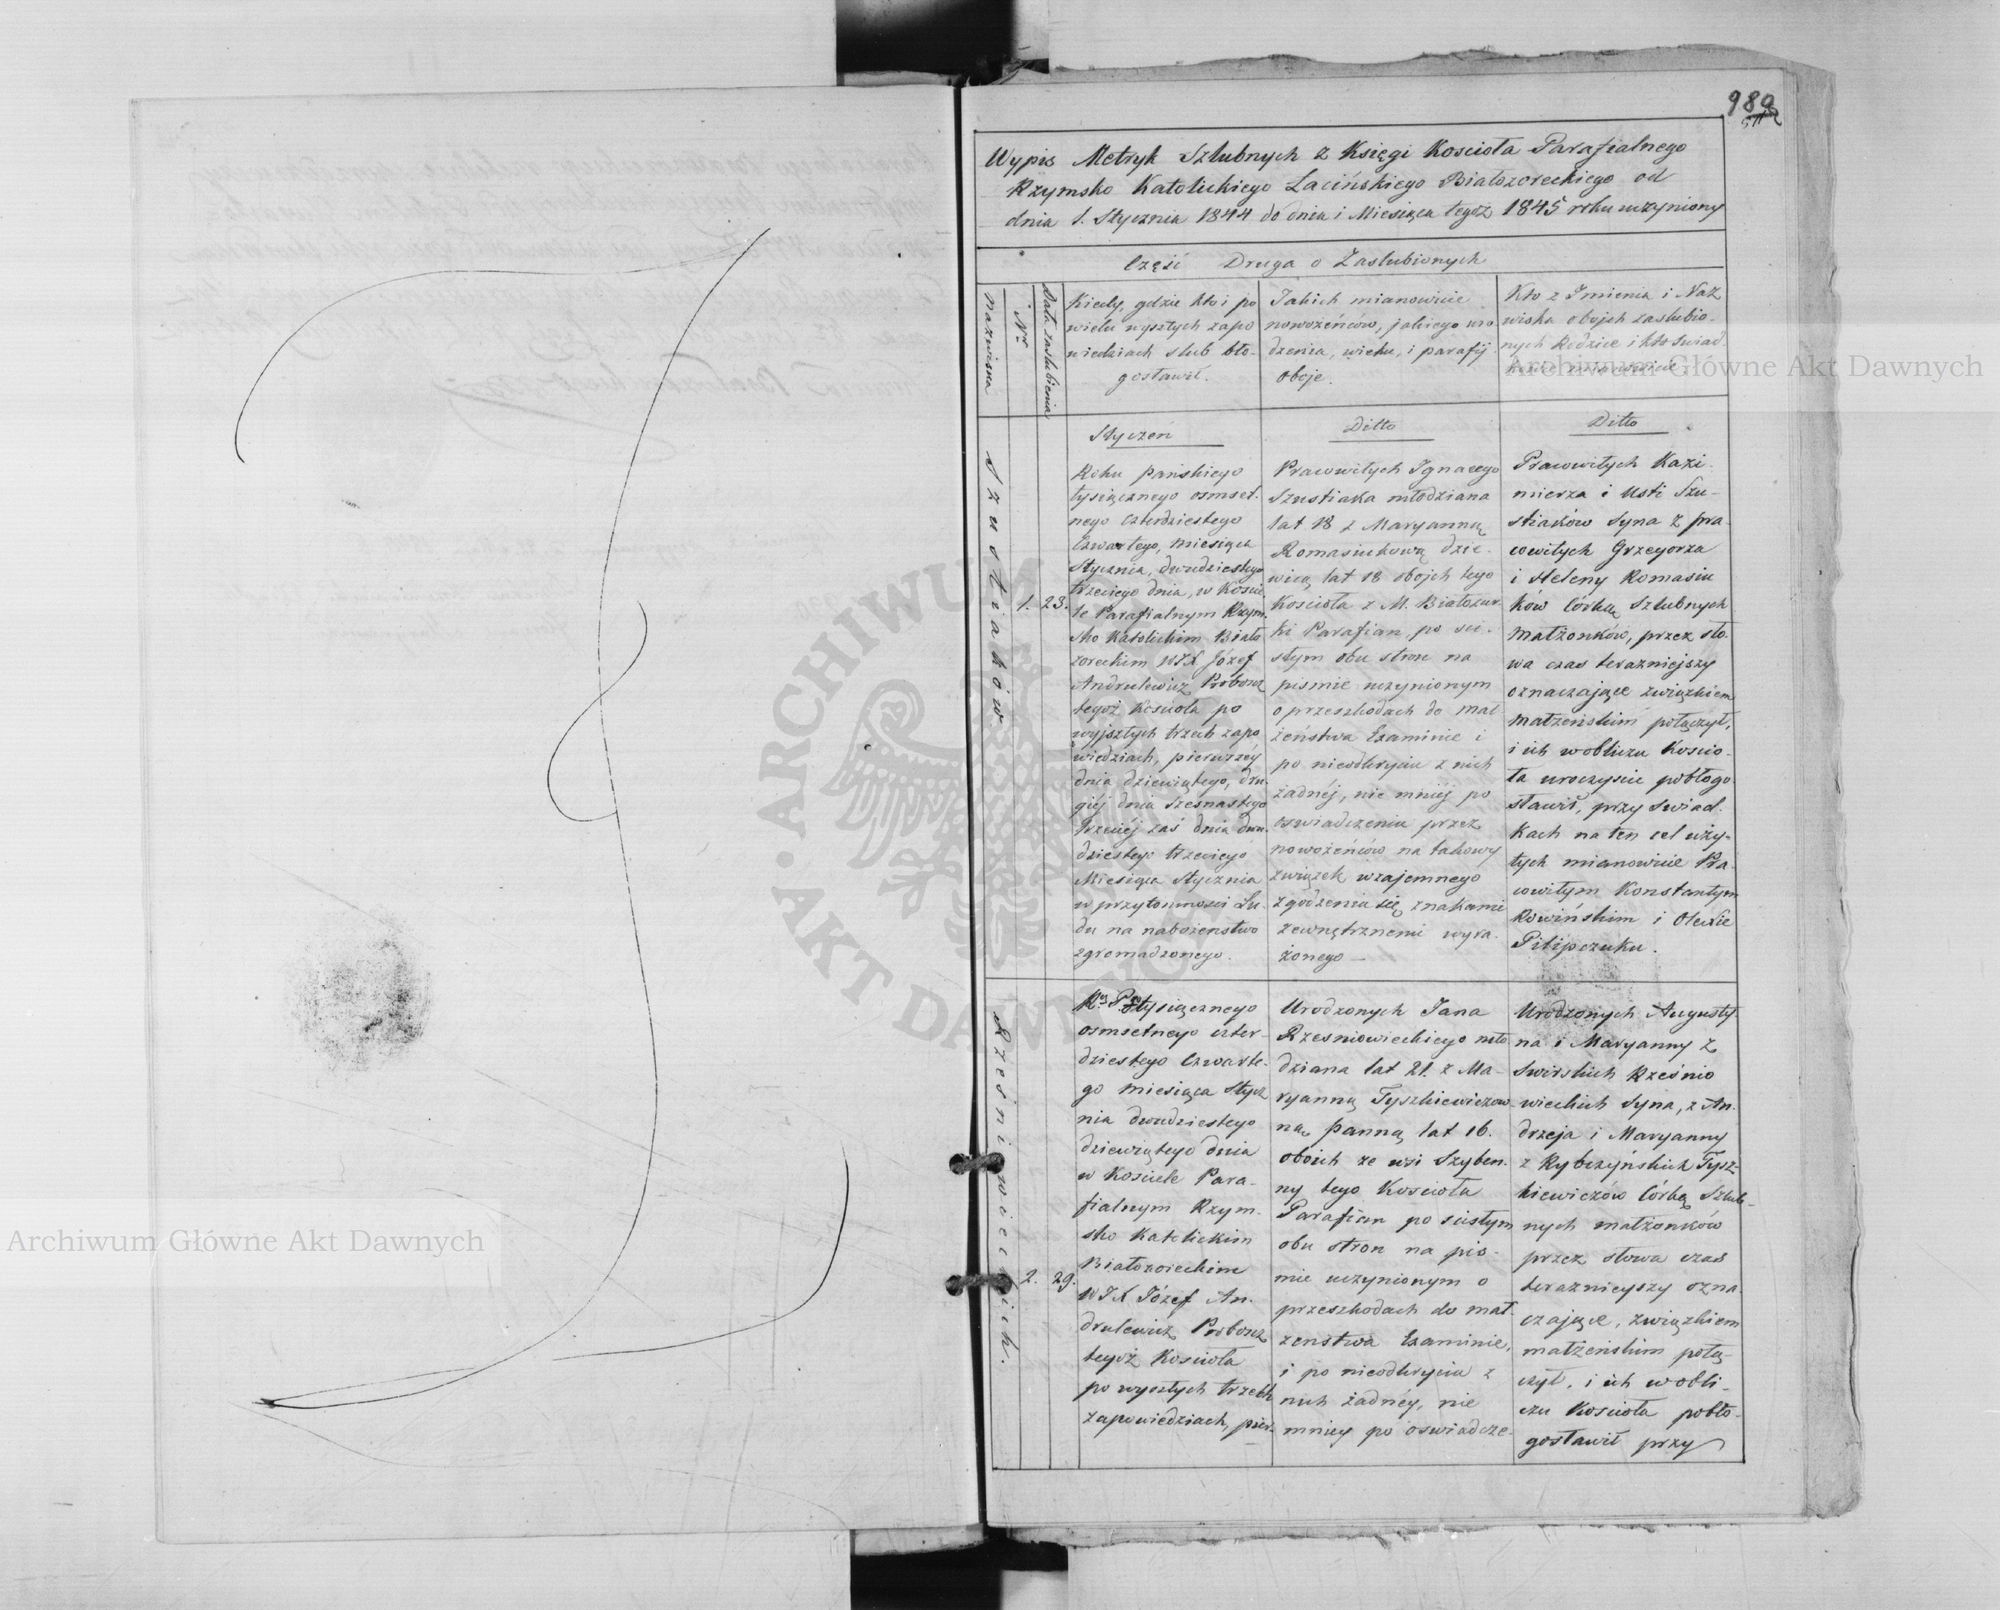 989
Wypis Metryk Szlubnych z Księgi Kościoła Parafialnego
Rzymsko Katolickiego Łacińskiego Białozoreckiego od
dnia 1. Stycznia 1844 do dnia i Miesiąca tegoż 1845 roku uczyniony
Część Druga o Zaslubionych
Nazwiska
Nr
Data zaslubienia
Kiedy, gdzie kto i po
wielu wyszłych zapo
wiedziach slub bło-
gosławił.
Jakich mianowicie
nowożeńców, jakiego uro-
dzenia, wieku, i parafij
oboje.
Kto z Imienia i Naz
wiska obojch zaslubio-
nych Rodzice i kto swiad
kowie mianowicie
Szustiaków.
1.
23.
Styczeń
Roku Pańskiego
tysiącznego osmset-
nego czterdziestego
Czwartego, miesiąca
Stycznia, dwudziestego
trzeciego dnia, w Kościе
le Parafialnym Rzym-
sko Katolickim Biało
zoreckim WJX Józef
Andrulewicz Proboszcz
tegoż Kościoła po
wyjszłych trzech zapo
wiedziach, pierwszéj
dnia dziewiątego, dru-
giéj dnia szesnastego
trzeciéj zaś dnia dwu-
dziestego trzeciego
Miesiąca Stycznia
w przytomności Lu-
du na nabożenstwo
zgromadzonego.
Ditto
Pracowitych Ignacego
Szustiaka młodziana
lat 18 z Maryanną
Romasiukową dzie-
wicą lat 18 obojch tego
Kościoła z M. Białozur-
ki Parafian, po sci-
słym obu stron na
pismie uczynionym
o przeszkodach do mał
żeństwa Examinie i
po nieodkryciu z nich
żadnéj, nie mniéj po
oswiadczeniu przez
nowożeńców na takowy
związek wzajemnego
zgodzenia się znakami
zewnętrznemi wyra-
żonego —
Ditto
Pracowitych Kazi-
mierza i Usti Szu-
stiaków Syna z pra-
cowitych Grzegorza
i Heleny Romasiu
ków Córką Szlubnych
małżonków, przez sło-
wa czas terazniejszy
oznaczające związkiem
małżeńskim połączył,
i ich w obliczu Koscio-
ła uroczyscie pobłogo-
sławił, przy swiad-
kach na ten cel uży-
tych mianowicie Pra-
cowitym Konstantym
Rowińskim i Olexie
Pilipczuku.
Rześniowieckich.
2.
29.
Ru Pgo tysiącznego
osmsetnego czter-
dziestego Czwarte-
go miesiąca Stycz
nia dwudziestego
dziewiątego dnia
w Kościele Para-
fialnym Rzym-
sko Katolickim
Białozoreckim
WJX Józef An-
drulewicz Proboszcz
tegoż Kościoła
po wyszłych trzech
zapowiedziach, pier-
Urodzonych Jana
Rzesniowieckiego mło
dziana lat 21. z Ma-
ryanną Tyszkiewiczow-
ną panną lat 16.
oboich ze wsi Szyben-
ny tego Kościoła
Parafian po scisłym
obu stron na pis-
mie uczynionym o
przeszkodach do mał-
żenstwa Examinie,
i po nieodkryciu z
nich żadnéy, nie
mniey po oswiadcze-
Urodzonych Augusty-
na i Maryanny z
Swirskich Rześnio
wieckich Syna, z An-
drzeja i Maryanny
z Rybczyńskich Tysz-
kiewiczów Córką Szlub-
nych małżonków
przez słowa czas
teraznieyszy ozna-
czające, związkiem
małżeńskim połą-
czył, i ich w obli-
czu Kościoła pobło-
gosławił przy
Archiwum Główne Akt Dawnych
Archiwum Główne Akt Dawnych
ARCHIWUM
AKT DAWNYCH